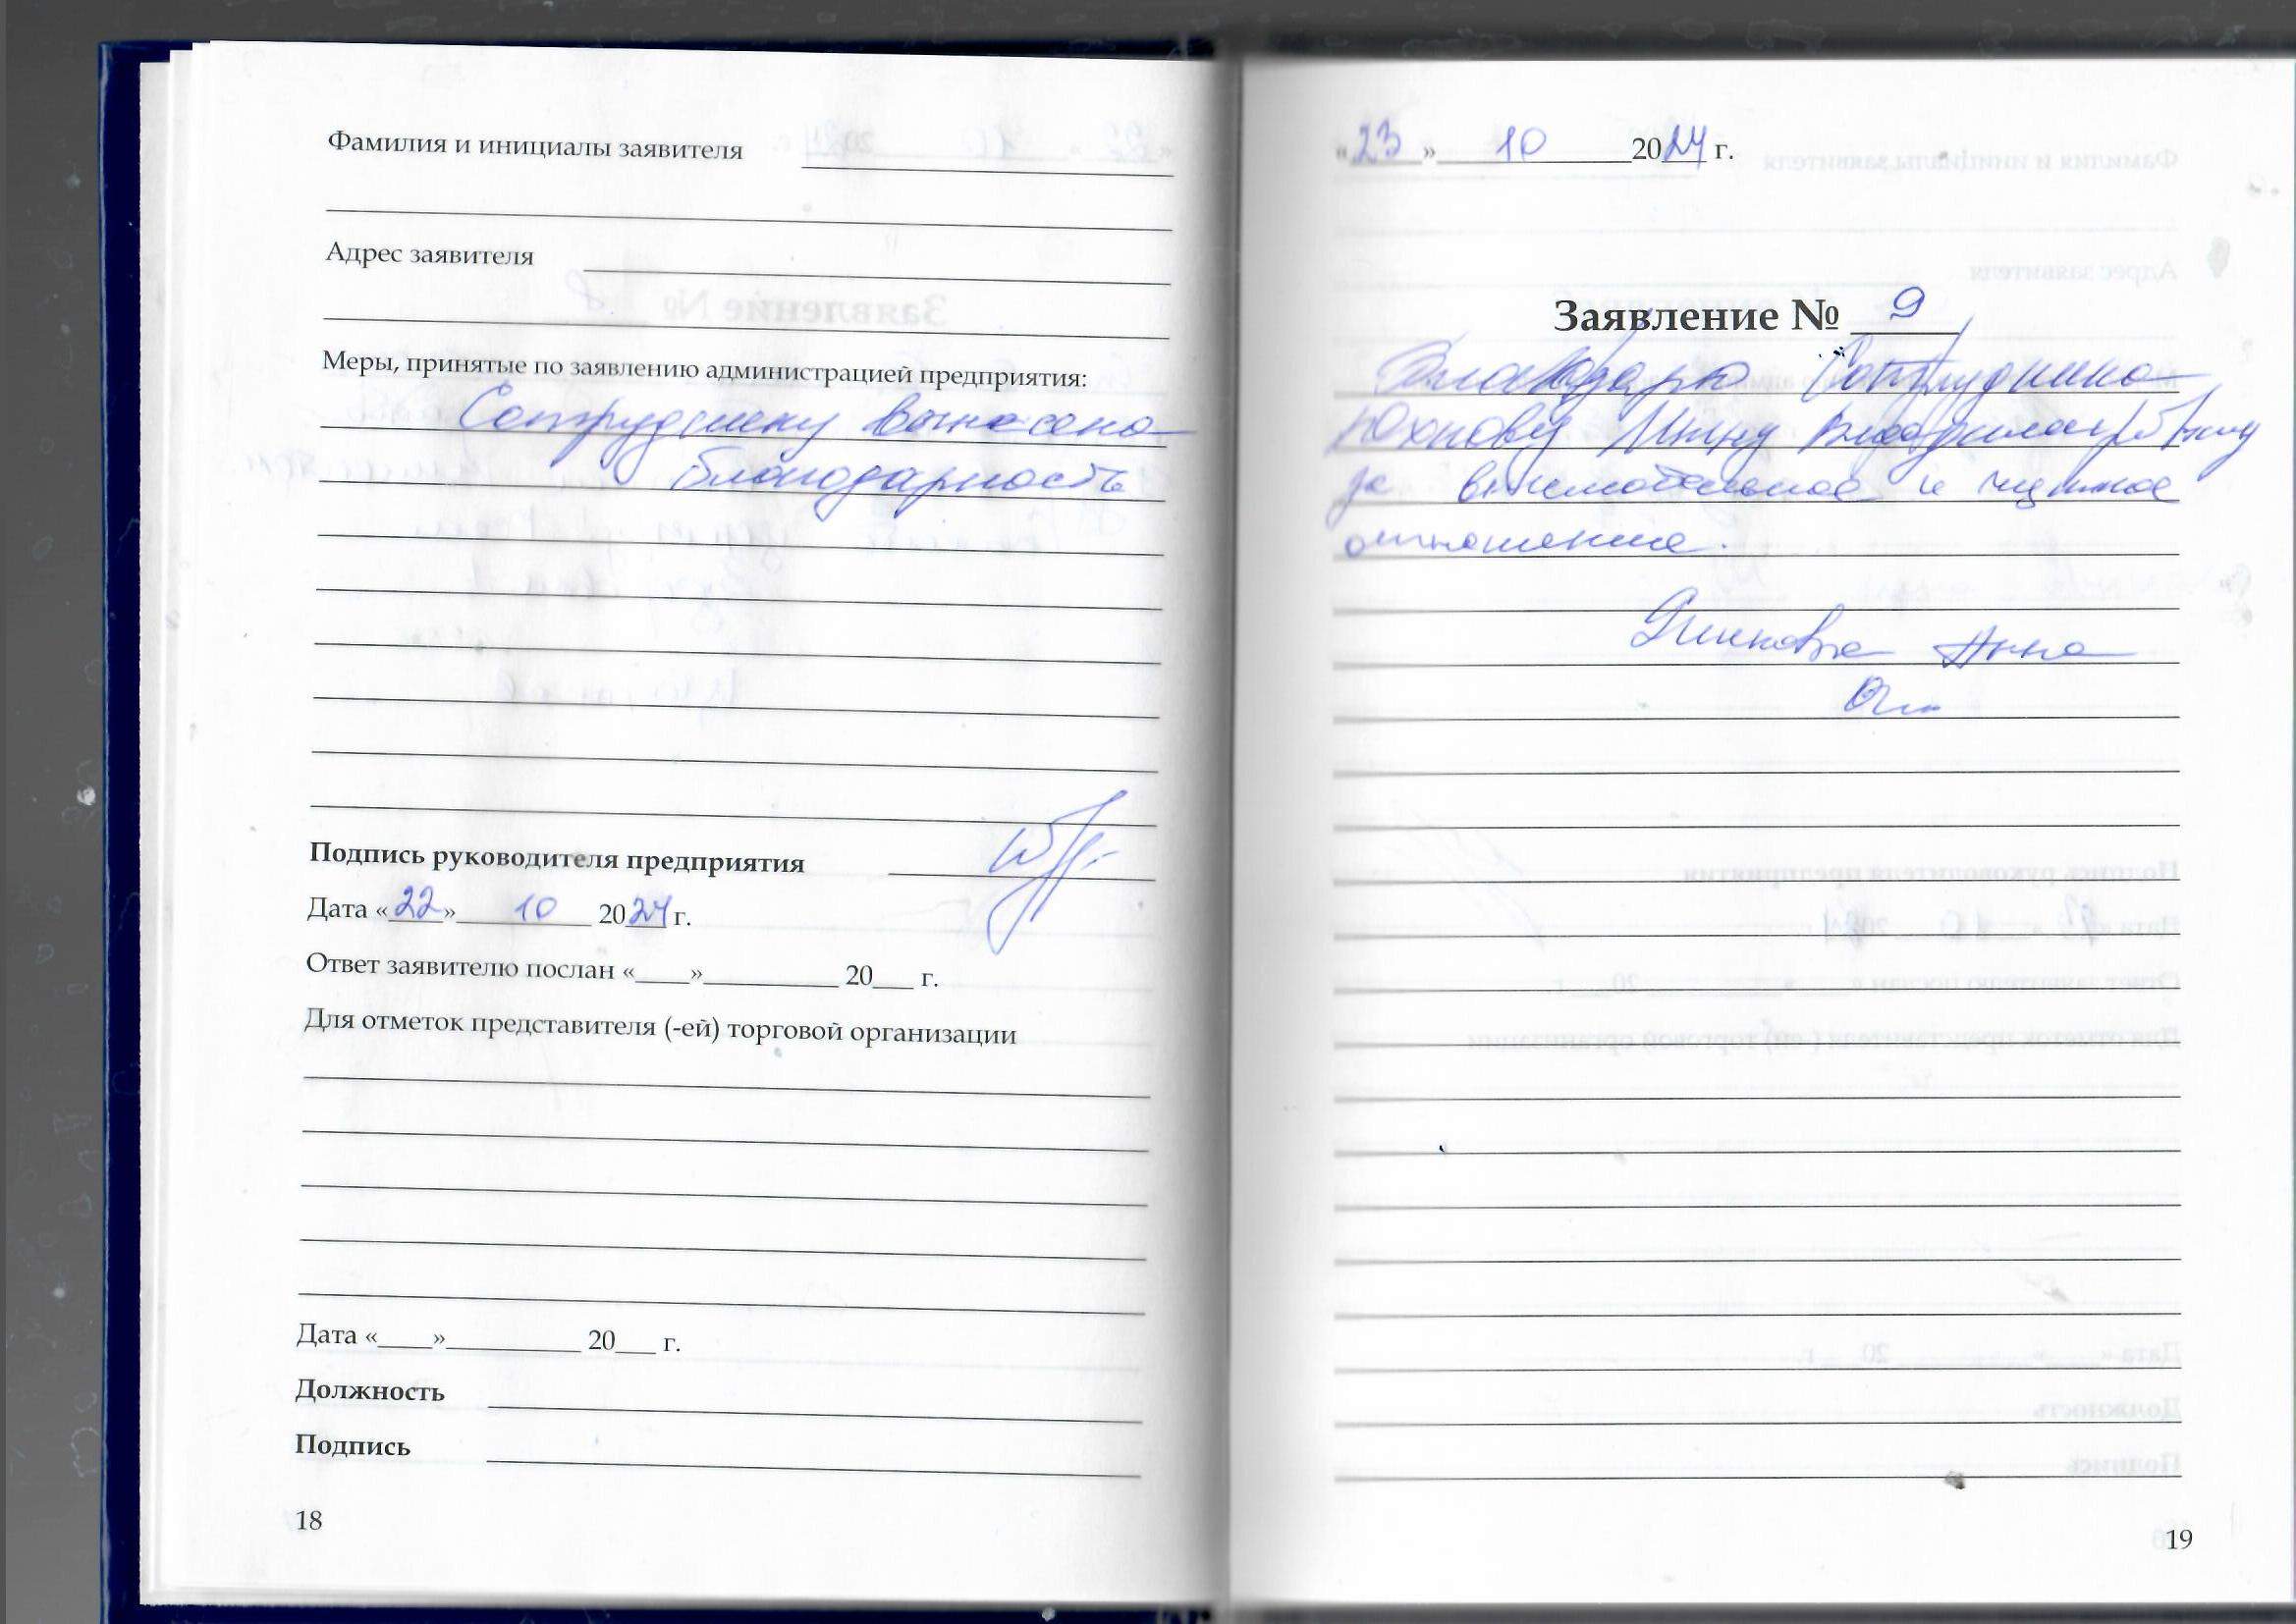 Фамилия и инициалы заявителя
Адрес заявителя
Меры, принятые по заявлению администрацией предприятия:
Сотруднику вынесена
благодарность
Подпись руководителя предприятия
Дата «22» 10 2024 г.
Ответ заявителю послан «____»__________ 20___ г.
Для отметок представителя (-ей) торговой организации
Дата «____»__________ 20___ г.
Должность
Подпись
18
«23» 10 2024 г.
Заявление № 9
Благодарю сотрудника
Юхнову Инну
за внимательное и чуткое
отношение.
Анна
19